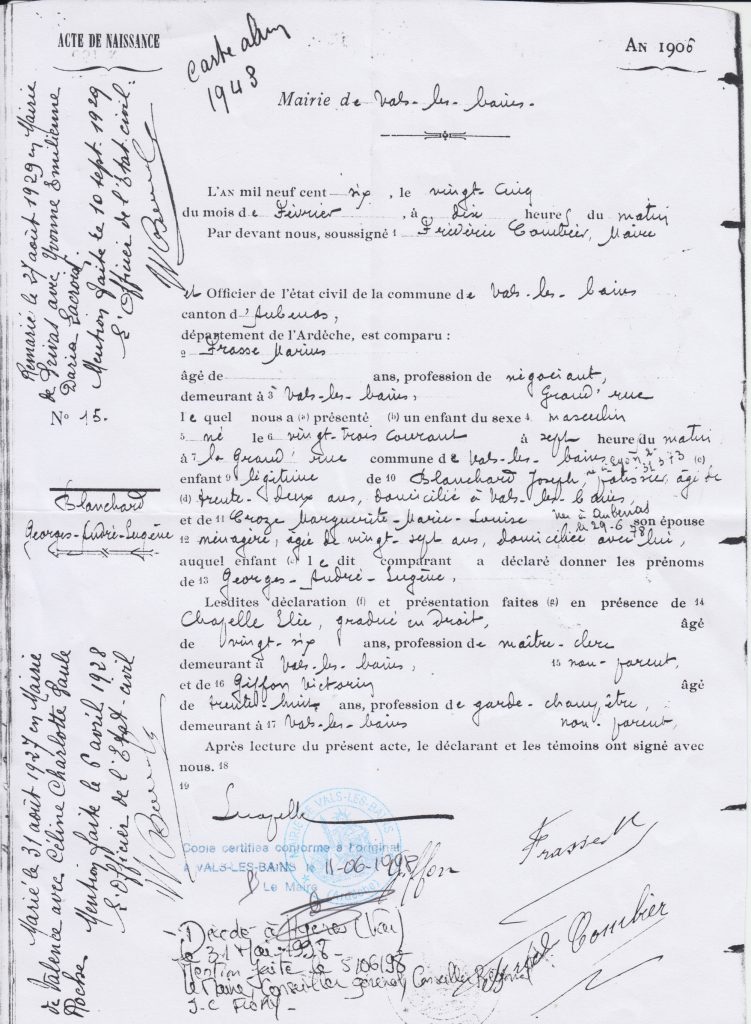 ACTE DE NAISSANCE
AN 1906
carte
1943
Mairie de Vals-les-bains.
L'AN mil neuf cent six, le vingt-cinq
du mois de Février, à dix heures du matin
Par devant nous, soussigné 1 Frédéric Combier, Maire
et Officier de l'état civil de la commune de Vals-les-bains
canton d'Aubenas,
département de l'Ardèche, est comparu :
2 Frasse Marius
âgé de ans, profession de négociant,
demeurant à 3 Vals-les-bains, Grand'rue
lequel nous a (a) présenté (b) un enfant du sexe 4 masculin
5 né le 6 vingt-trois courant à sept heure du matin
à 7 la Grand'rue commune de Vals-les-bains (c)
enfant 9 légitime de 10 Blanchard Joseph, pâtissier, âgé de
(d) trente-deux ans, domicilié à Vals-les-bains,
et de 11 Croze Marguerite-Marie-Louise son épouse
née à Aubenas
le 29-6-78
12 ménagère, âgée de vingt-sept ans, domiciliée avec lui,
auquel enfant (e) le dit comparant a déclaré donner les prénoms
de 13 Georges-André-Eugène,
Lesdites déclaration (f) et présentation faites (g) en présence de 14
Chapelle Elie, gradué en droit, âgé
de vingt-six ans, profession de maître-clerc
demeurant à Vals-les-bains, 15 non-parent,
et de 16 Giffon Victorin âgé
de trente-huit ans, profession de garde-champêtre,
demeurant à 17 Vals-les-bains non-parent,
Après lecture du présent acte, le déclarant et les témoins ont signé avec
nous. 18
19
Giffon
Frasse M
Combier
MAIRIE DE VALS-LES-BAINS
(Ardèche)
Copie certifiée conforme à l'original
A VALS-LES-BAINS le 11-06-1998
Le Maire
Décédé à Hyères (Var)
le 31 Mai 1998
Mention faite le 5/06/98
Le Maire, Conseiller Général, Conseiller Régional
J.C FLORY
Remarié le 27 août 1929 en Mairie
de Privas avec Yvonne Emilienne
Daria Lacroix.
Mention faite le 10 sept. 1929
L'Officier de l'Etat civil.
No 15.
Blanchard
Georges-André-Eugène
Marié le 31 août 1927 en Mairie
de Valence avec Céline Charlotte Paule
Roche
Mention faite le 6 avril 1928
L'Officier de l'Etat-civil